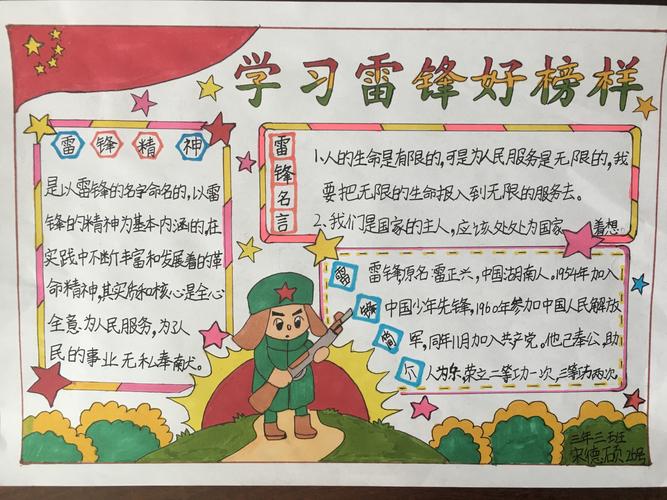 学习雷锋好榜样
雷锋精神
是以雷锋的名字命名的,以雷
锋的精神为基本内涵的,在
实践中不断丰富和发展着的革
命精神,其实质和核心是全心
全意为人民服务,为了人
民的事业无私奉献。
雷锋名言
1.人的生命是有限的,可是为人民服务是无限的,我
要把无限的生命投入到无限的服务去。
2.我们是国家的主人,应该处处为国家着想
雷锋简介
雷锋原名雷正兴,中国湖南人。1954年加入
中国少年先锋,1960年参加中国人民解放
军,同年11月加入共产党。他己奉公,助
人为乐,荣立二等功一次,三等功两次
三年二班
宋德硕26号